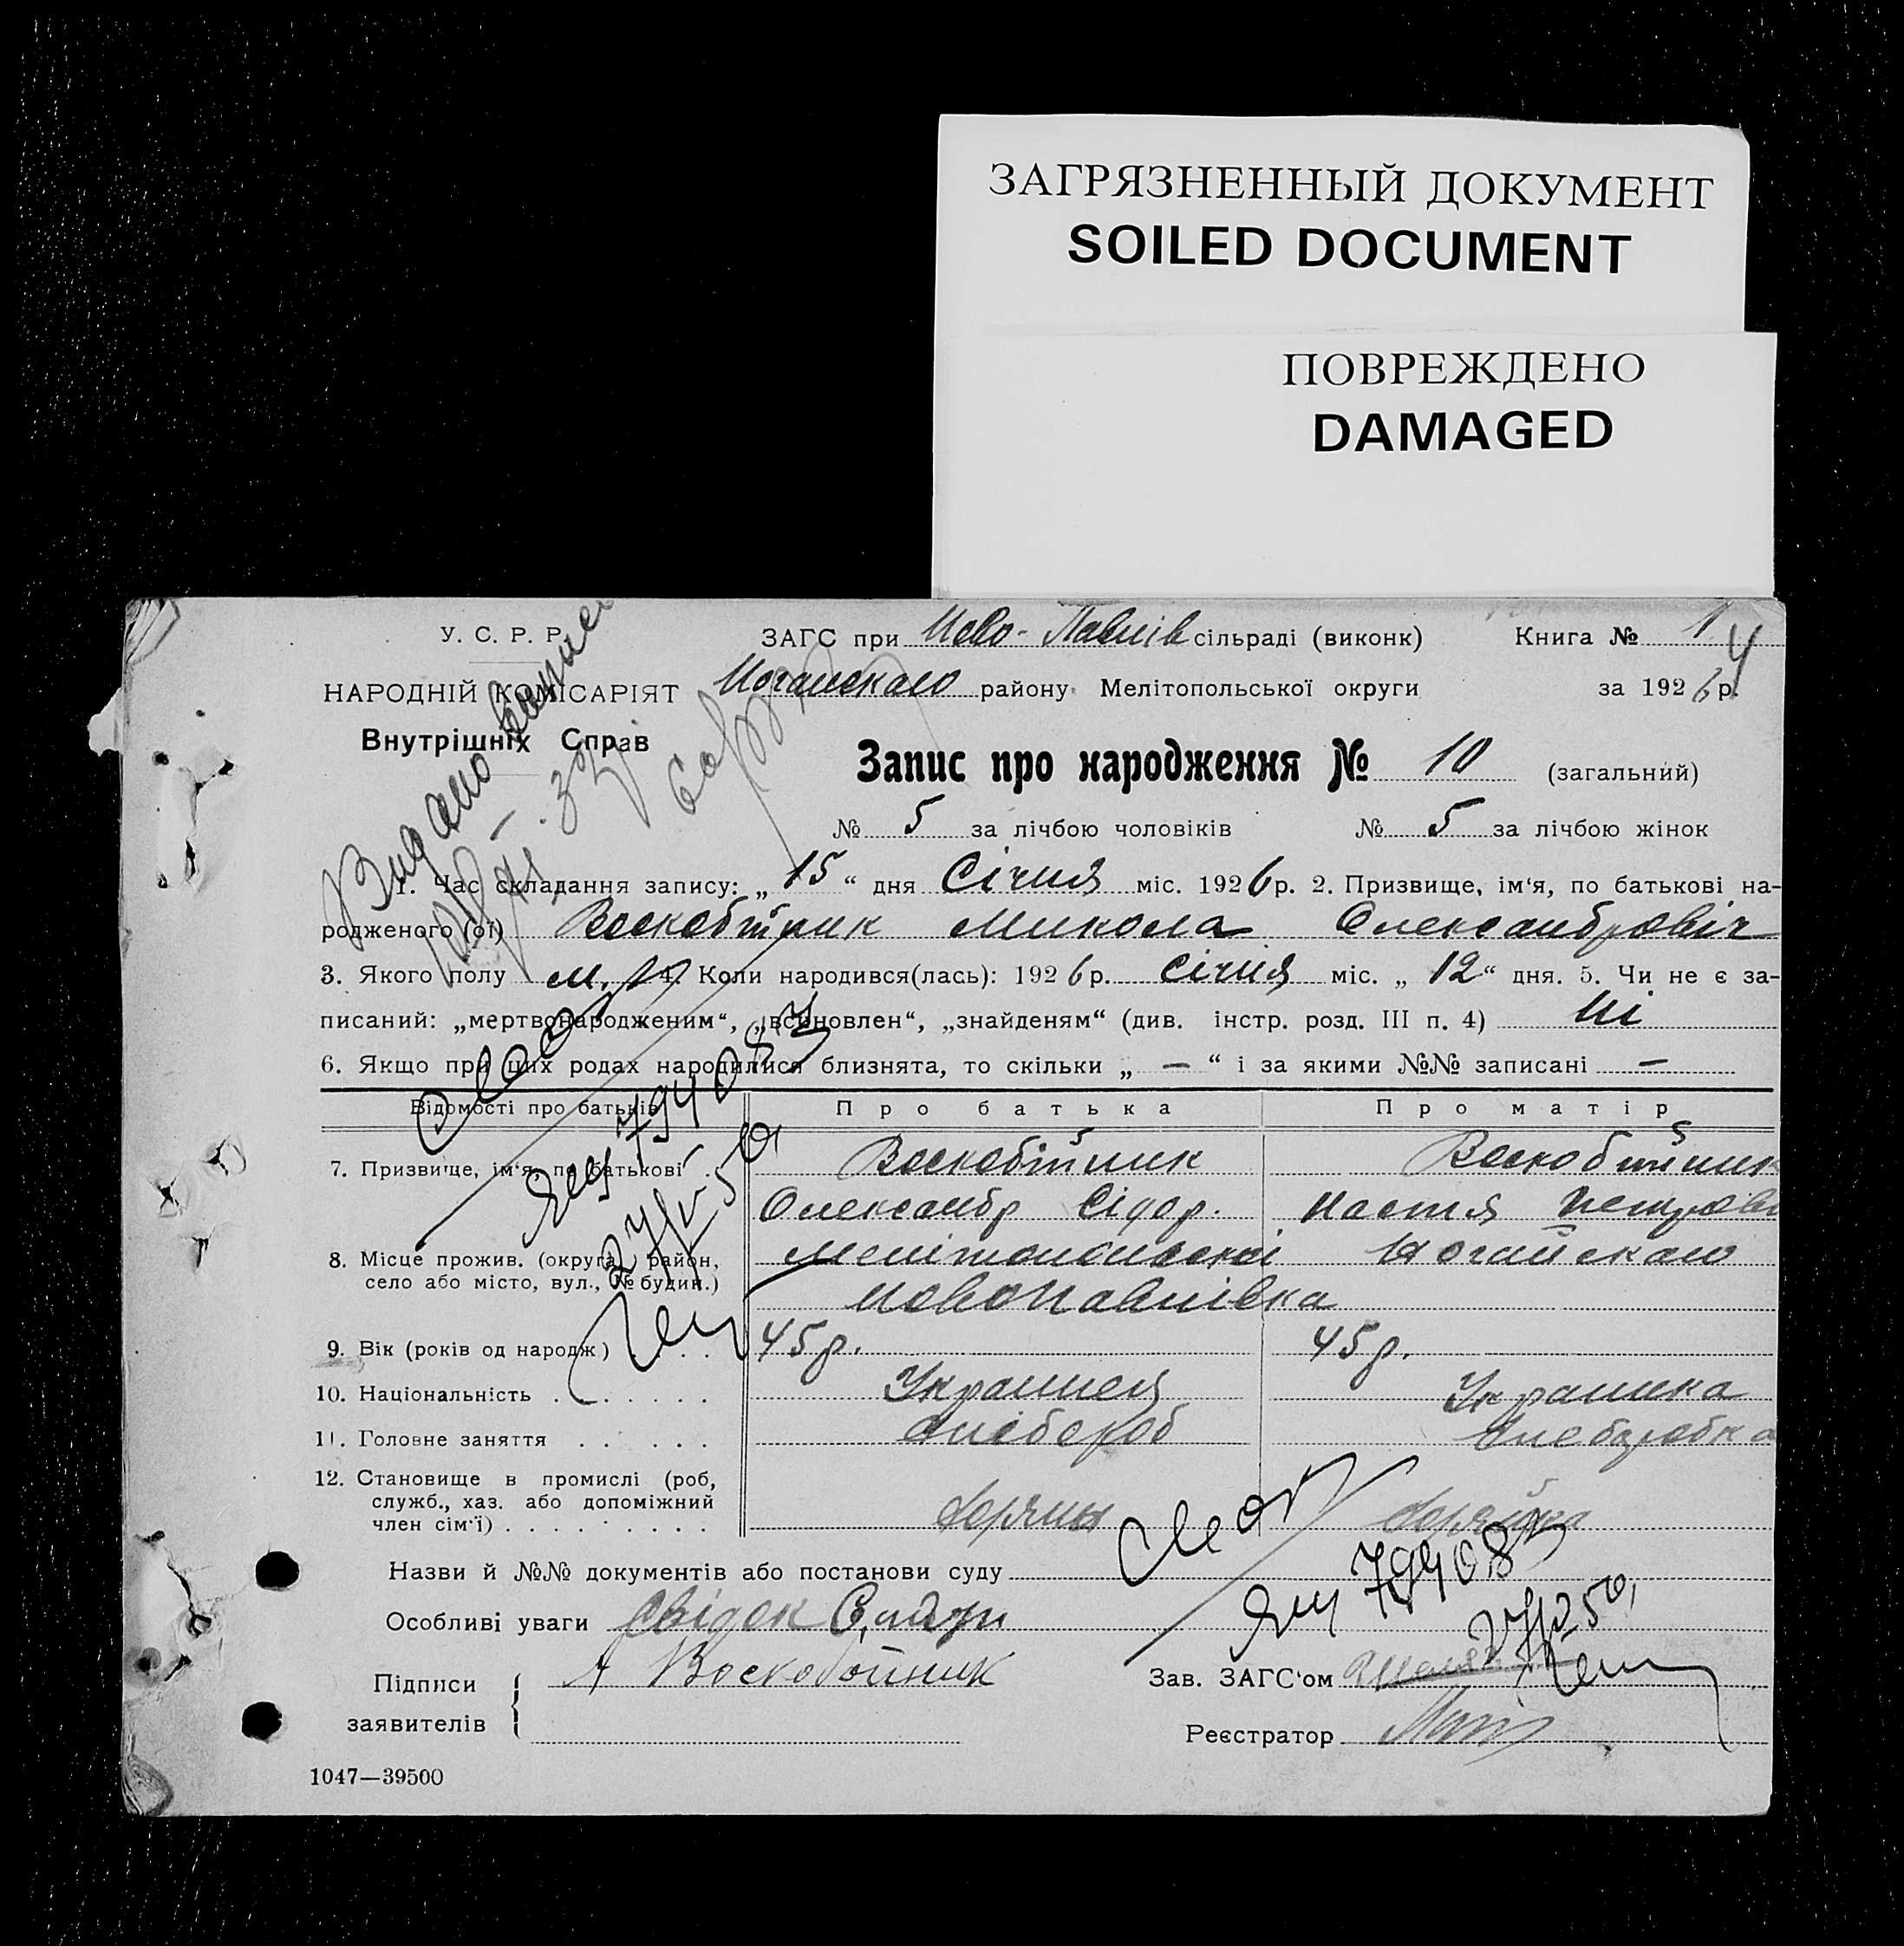 ЗАГРЯЗНЕННЫЙ ДОКУМЕНТ
SOILED DOCUMENT
ПОВРЕЖДЕНО
DAMAGED
У. С. Р. Р.
НАРОДНІЙ КОМІСАРІЯТ
Внутрішніх Справ
ЗАГС при Ново-Павлів сільраді (виконк) Книга № 1
4
Ногайскаго району Мелітопольської округи за 1926 р.
Запис про народження № 10 (загальний)
№ 5 за лічбою чоловіків № 5 за лічбою жінок
Видано
1. Час складання запису: „ 15 “ дня Січня міс. 1926 р. 2. Призвище, ім‘я, по батькові на-
родженого (ої) Воскобійник Микола Олександровіч
3. Якого полу м. 4. Коли народився(лась): 1926 р. Січня міс. „ 12 “ дня. 5. Чи не є за-
писаний: „мертвонародженим“, „всиновлен“, „знайденям“ (див. інстр. розд. III п. 4) Ні
6. Якщо при цих родах народилися близнята, то скільки „ — “ і за якими №№ записані —
Відомості про батьків Про батька Про матір
7. Призвище, ім‘я, по батькові . Воскобійник Воскобійник
Олександр Сідор. Настя
8. Місце прожив. (округа, район, Мелітопольскоі Ногайскаго
село або місто, вул., № будин.) Новопавлівка
9. Вік (років од народж.) . . . . 45 р. 45 р.
10. Національність . . . . . . . Українец Українка
11. Головне заняття . . . . . . Хлебороб Хлеборобка
12. Становище в промислі (роб,
служб., хаз. або допоміжний
член сім‘ї) . . . . . . . . .
Назви й №№ документів або постанови суду
794083
Особливі уваги Свідок
Підписи А Воскобойник Зав. ЗАГС‘ом
заявителів
Реєстратор
1047—39500